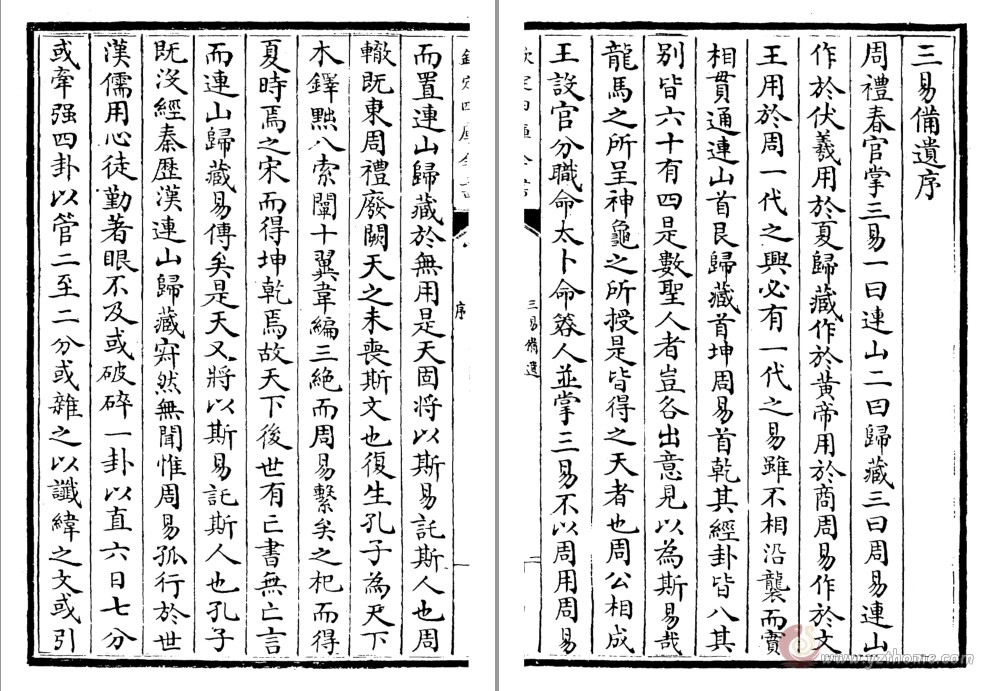 三易備遺序
周禮春官掌三易一曰連山二曰歸藏三曰周易連山
作於伏羲用於夏歸藏作於黃帝用於商周易作於文
王用於周一代之興必有一代之易雖不相沿襲而實
相貫通連山首艮歸藏首坤周易首乾其經卦皆八其
別皆六十有四是數聖人者豈各出意見以為斯易哉
龍馬之所呈神龜之所授是皆得之天者也周公相成
王設官分職命太卜命簭人並掌三易不以周用周易
三易備遺
序
而置連山歸藏於無用是天固將以斯易託斯人也周
轍既東周禮廢闕天之未喪斯文也復生孔子為天下
木鐸黜八索闡十翼韋編三絕而周易繫矣之杞而得
夏時焉之宋而得坤乾焉故天下後世有亡書無亡言
而連山歸藏易傳矣是天又將以斯易託斯人也孔子
既沒經秦歷漢連山歸藏寂然無聞惟周易孤行於世
漢儒用心徒勤著眼不及或破碎一卦以直六日七分
或牽强四卦以管二至二分或雜之以讖緯之文或引
www.yzthome.com